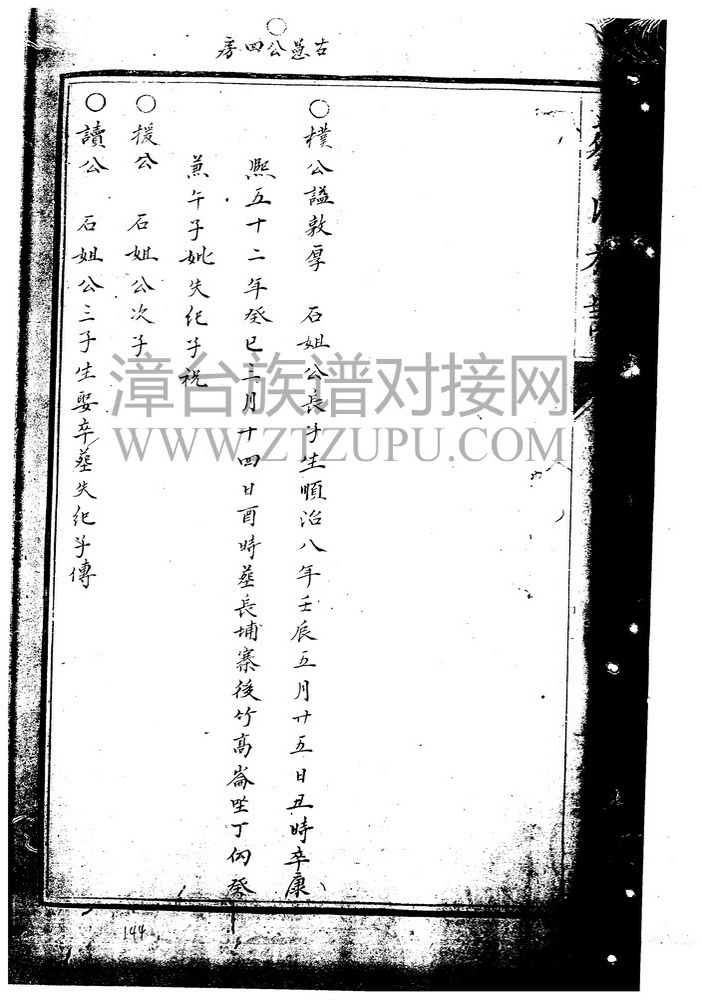 古愚公四房
○樸公謚敦厚 石姐公長子生順治八年壬辰五月廿五日丑時卒康
熙五十二年癸巳三月十四日酉時葬長埔寨後竹高崙坐丁向癸
兼午子妣失紀子祝
○援公 石姐公次子
○讀公 石姐公三子生娶卒葬失紀子傳
144
漳台族谱对接网
WWW.ZTZUPU.COM